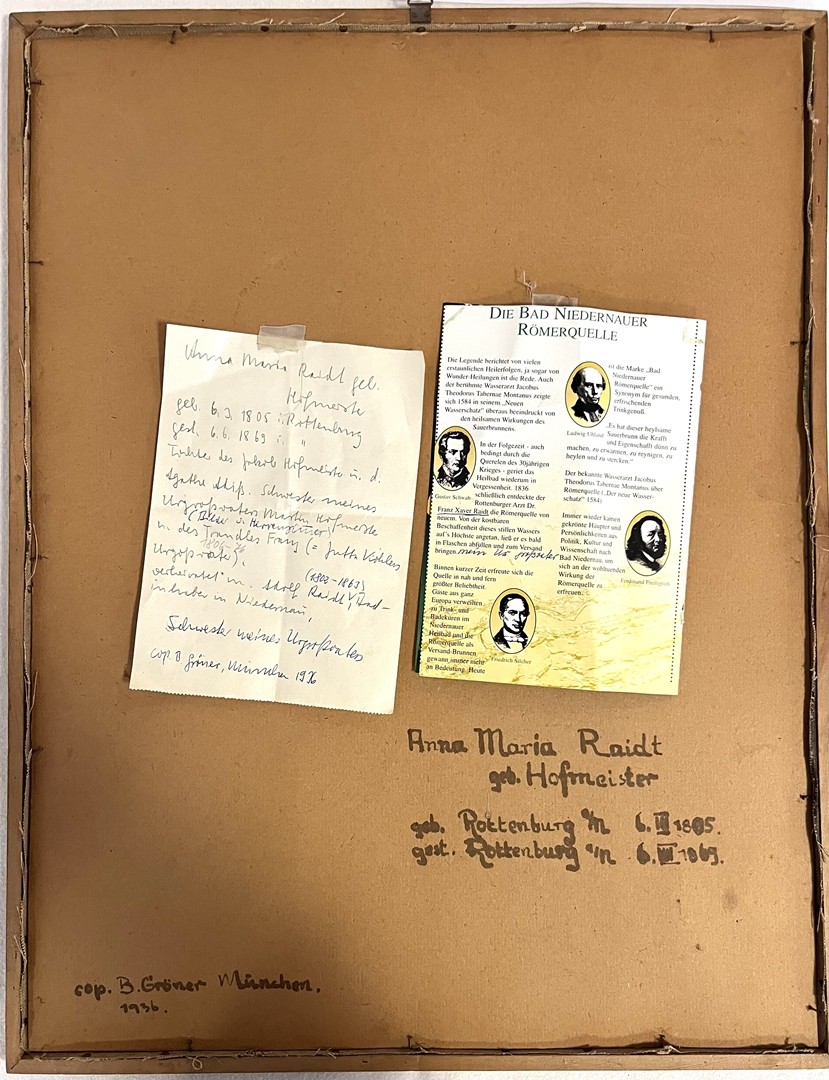 Anna Maria Raidt geb.
Hofmeister
geb. 6. 3. 1805 i. Rottenburg
gest. 6. 6. 1869 i. "
Tochter des Jakob Hofmeister u. d.
Agathe Schwester meines
Urgroßvaters Martin Hofmeister
(Bilder i. Herrenzimmer)
u. des Franz (= Jutta
Urgroßvater).
(1803-1863)
verheiratet m. Adolf Raidt, Bad-
inhaber in Niedernau,
Schwester meines Urgroßvaters
cop. B. Gröner, München 1936
DIE BAD NIEDERNAUER
RÖMERQUELLE
Die Legende berichtet von vielen
erstaunlichen Heilerfolgen, ja sogar von
Wunder-Heilungen ist die Rede. Auch
der berühmte Wasserarzt Jacobus
Theodorus Tabernae Montanus zeigte
sich 1584 in seinem „Neuen
Wasserschatz" überaus beeindruckt von
den heilsamen Wirkungen des
Sauerbrunnens.
In der Folgezeit - auch
bedingt durch die
Querelen des 30jährigen
Krieges - geriet das
Heilbad wiederum in
Vergessenheit. 1836
schließlich entdeckte der
Rottenburger Arzt Dr.
Gustav Schwab
Franz Xaver Raidt die Römerquelle von
neuem. Von der kostbaren
Beschaffenheit dieses stillen Wassers
auf's Höchste angetan, ließ er es bald
in Flaschen abfüllen und zum Versand
bringen. mein Ur großvater
Binnen kurzer Zeit erfreute sich die
Quelle in nah und fern
größter Beliebtheit.
Gäste aus ganz
Europa verweilten
zu Trink- und
Badekuren im
Niedernauer
Heilbad und die
Römerquelle als
Versand-Brunnen
gewann immer mehr
an Bedeutung. Heute
Friedrich Silcher
ist die Marke „Bad
Niedernauer
Römerquelle" ein
Synonym für gesunden,
erfrischenden
Trinkgenuß.
Ludwig Uhland
„Es hat dieser heylsame
Sauerbrunn die Krafft
und Eigenschafft dünn zu
machen, zu erwarnen, zu reynigen, zu
heylen und zu stercken."
Der bekannte Wasserarzt Jacobus
Theodorus Tabernae Montanus über
Römerquelle („Der neue Wasser-
schatz" 1584)
Immer wieder kamen
gekrönte Häupter und
Persönlichkeiten aus
Politik, Kultur und
Wissenschaft nach
Bad Niedernau, um
sich an der wohltuenden
Wirkung der
Römerquelle zu
erfreuen.
Ferdinand Freiligrath
Anna Maria Raidt
geb. Hofmeister
geb. Rottenburg a/N 6. III 1805.
gest. Rottenburg a/N 6. VI 1869.
cop. B. Gröner München.
1936.